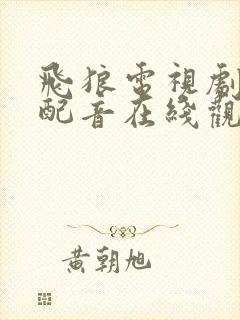 飛狼電視劇
配音在綫觀
黃朝旭